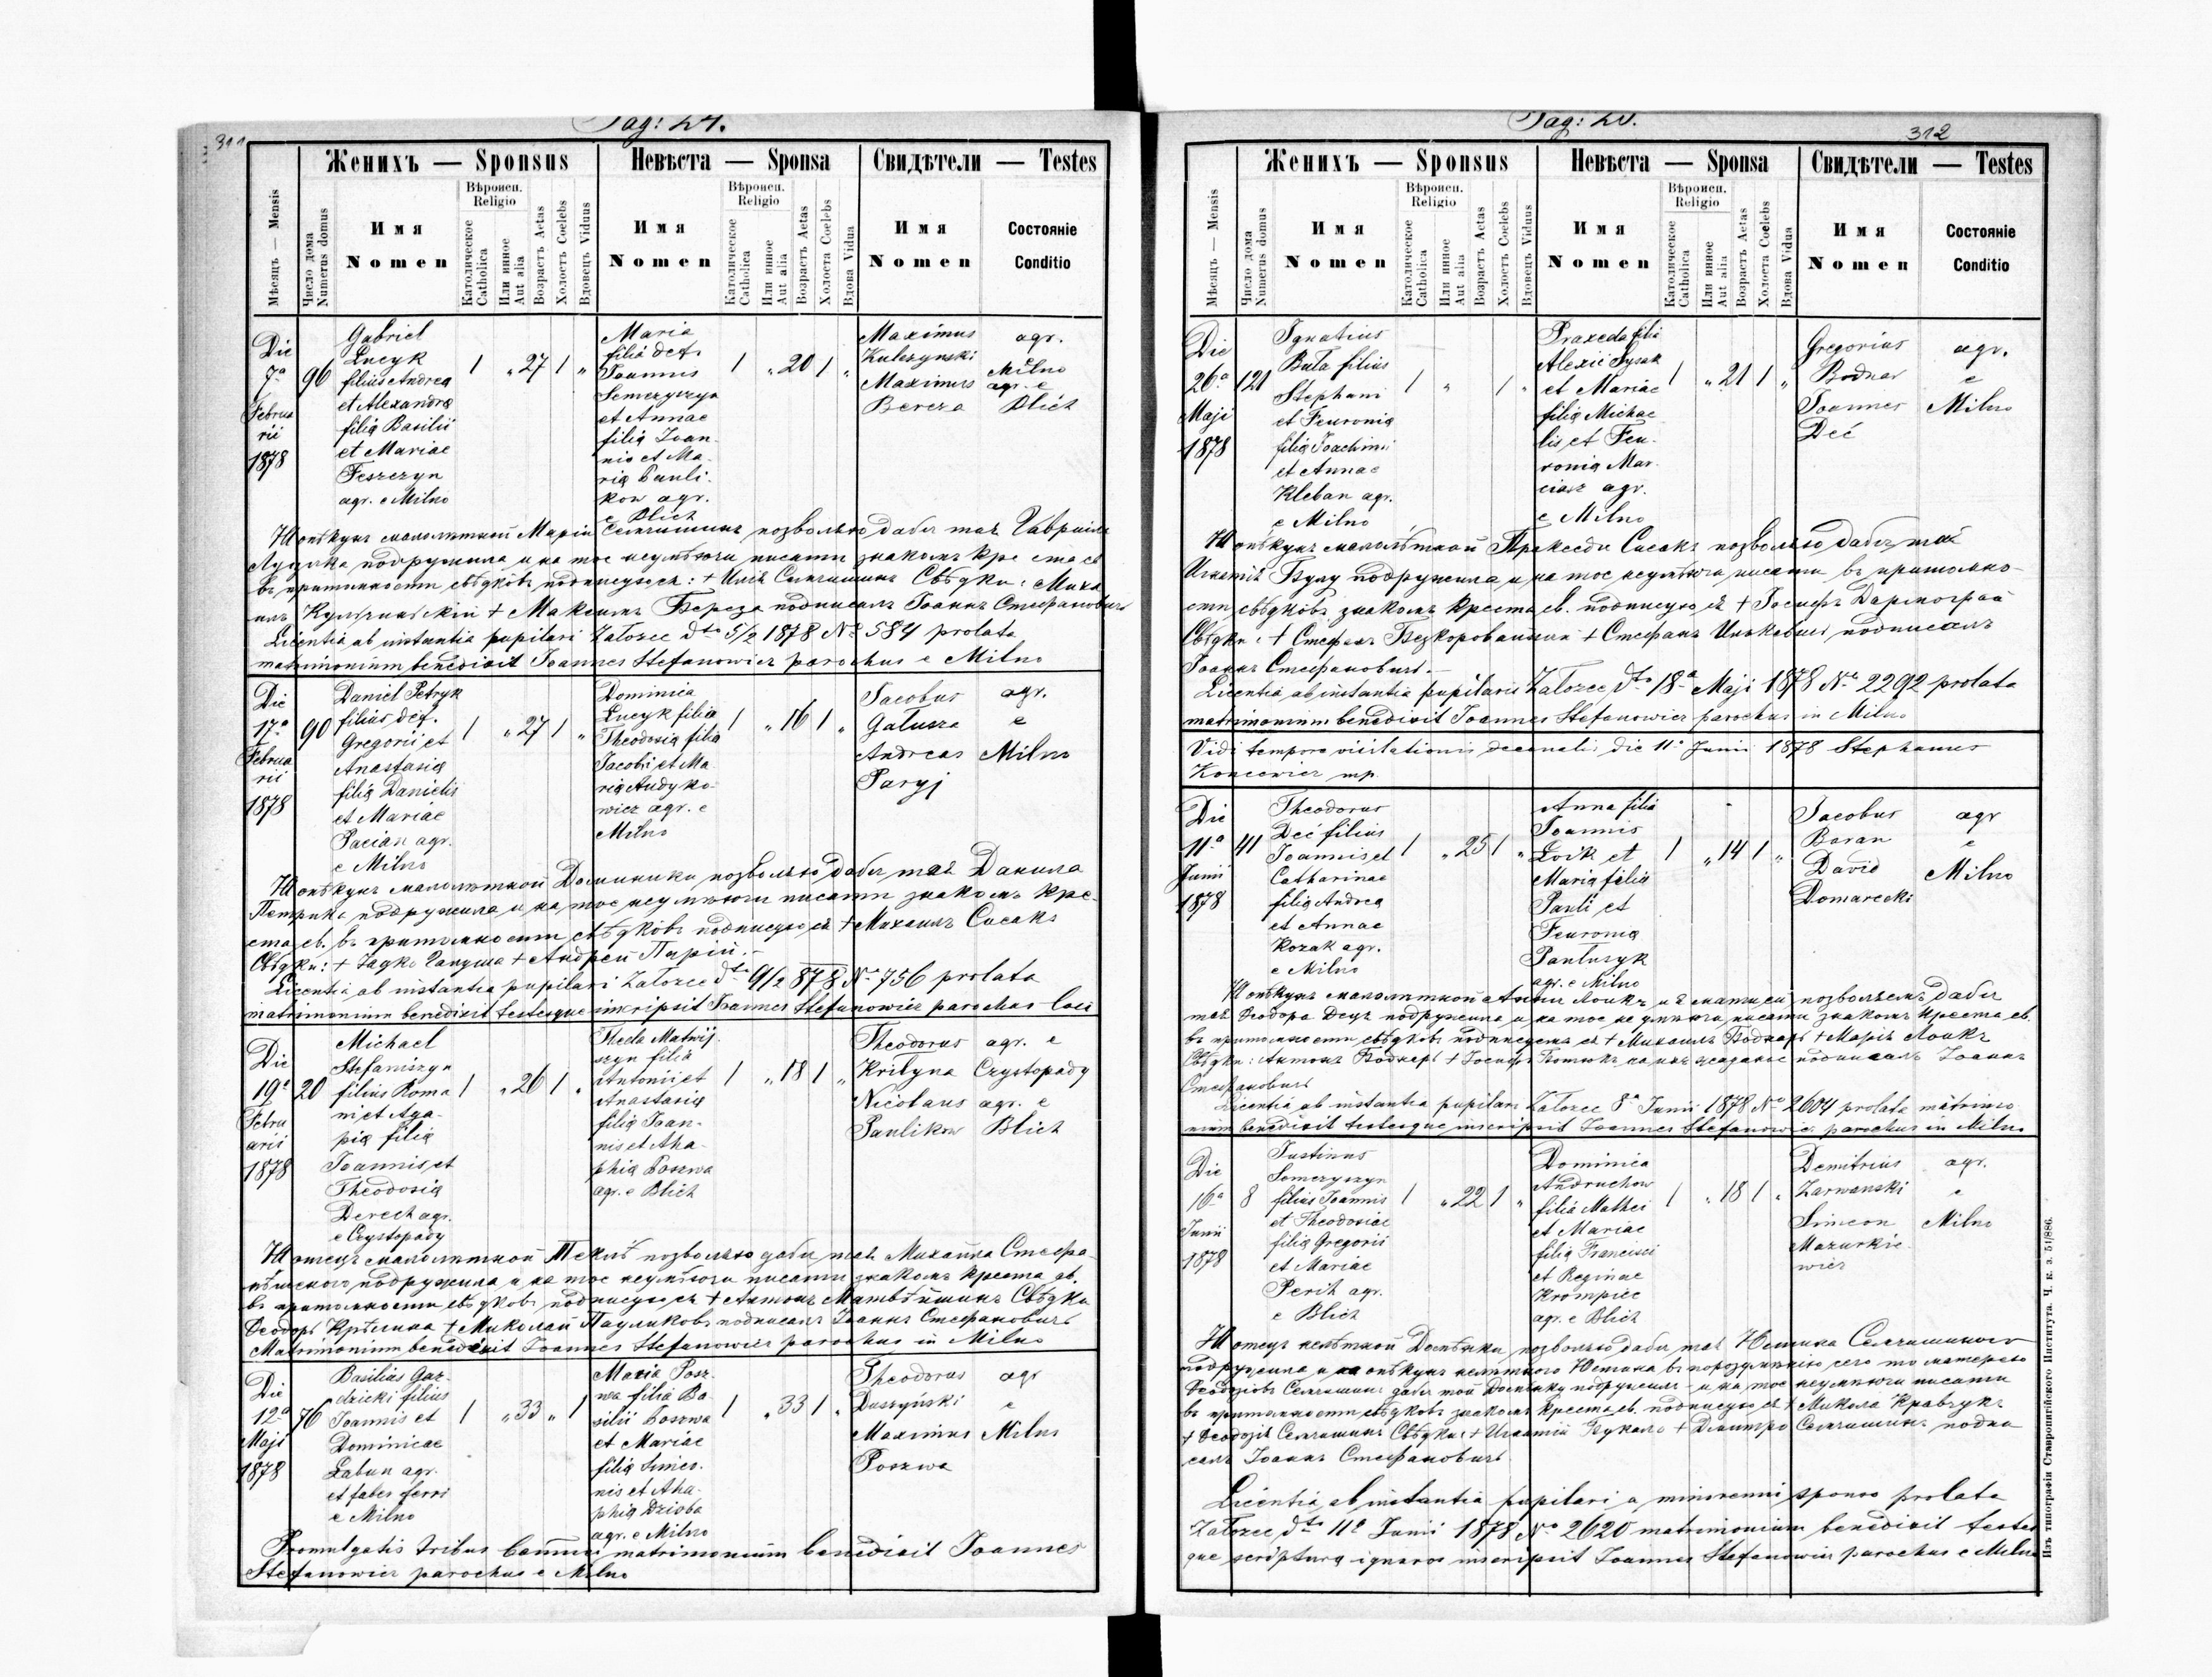 Pag: 24.
311
Женихъ — Sponsus
Невѣста — Sponsa
Свидѣтели — Testes
Мѣсяцъ — Mensis
Число дома
Numerus domus
Имя
Nomen
Вѣроисп.
Religio
Католическое
Catholica
Или инное
Aut alia
Возрастъ Aetas
Холостъ Coelebs
Вдовецъ Viduus
Имя
Nomen
Вѣроисп.
Religio
Католическое
Catholica
Или инное
Aut alia
Возрастъ Aetas
Холоста Coelebs
Вдова Vidua
Имя
Nomen
Состояніе
Conditio
Die
7ª
Februa
rii
1878
96
Gabriel
Lucyk
filius Andrea
et Alexandra
filia Basilii
et Mariae
Feszczyn
agr. e Milno
1 „ 27 1 „
Maria
filia def.
Joannis
Semczyszyn
et Annae
filia Joan-
nis et Ma-
ria Pauli-
kow agr.
e Blich
1 „ 20 1 „
Maximus
Kulczynski
Maximus
Bereza
agr.
e
Milno
agr. e
Blich
Я опѣкунъ малолѣтной Маріи Семчишинъ позволяю дабы таъ Гавриила
Луцыка подружила и на тое неумѣючи писати знакомъ креста св
въ притомности свѣдковъ подписуюсь: + Илія Семчишинъ Свѣдки: Миха
илъ Кульчиньскій + Максимъ Береза подписалъ Іоаннъ Стефановичъ
Licentia ab instantia pupilari Załozce dto 5/2 1878 No 584 prolata
matrimonium benedixit Joannes Stefanowicz parochus e Milno
Die
17ª
Februa
rii
1878
90
Daniel Petryk
filius def.
Gregorii et
Anastasia
filia Danielis
et Mariae
Pacian agr.
e Milno
1 „ 27 1 „
Dominica
Lucyk filia
Theodosia filia
Jacobi et Ma-
ria Andyko-
wicz agr. e
Milno
1 „ 16 1 „
Jacobus
Gałusza
Andreas
Paryj
agr.
e
Milno
Я опѣкунъ малолѣтной Доминики позволяю дабы таъ Данила
Петрика подружила и на тое неумѣючи писати знакомъ кре-
ста св. въ притомности свѣдковъ подписуюсь + Михаилъ Сисакъ
Свѣдки: + Яцко Галуша + Андрей Парій.-
Licentia ab instantia pupilari Załozce dto 9/2 878 No 756 prolata
matrimonium benedixit testesque inscripsit Joannes Stefanowicz parochus loci
Die
19ª
Febru
arii
1878
20
Michael
Stefaniszyn
filius Roma
ni et Aga-
pia filia
Joannis et
Theodosia
Derech agr.
e Czystopady
1 „ 26 1 „
Thecla Matwij-
szyn filia
Antonii et
Anastasia
filia Joan-
nis et Aha-
phia Poszwa
agr. e Blich
1 „ 18 1 „
Theodorus
Kriłyna
Nicolaus
Paulikow
agr. e
Czystopady
agr. e
Blich
Я отецъ малолѣтной Теклѣ позволяю дабы таъ Михайла Стефа-
нѣшиного подружила и на тое неумѣючи писати знакомъ креста св.
въ притомности свѣдковъ подписуюсь + Антонъ Матвѣйшинъ Свѣдки
Ѳеодоръ Крѣлина + Миколай Пауликовъ подписалъ Іоаннъ Стефановичъ
Matrimonium benedixit Joannes Stefanowicz parochus in Milno
Die
12ª
Maji
1878
76
Basilius Gaz-
dzicki filius
Joannis et
Dominicae
Łabun agr.
et faber ferri
e Milno
1 „ 33 „ 1
Maria Posz-
wa filia Ba-
silii Poszwa
et Mariae
filia Simeo-
nis et Aha-
phia Dzioba
agr. e Milno
1 „ 33 1 „
Theodorus
Duszyński
Maximus
Poszwa
agr
e
Milno
Promulgatis tribus bannis matrimonium benedixit Joannes
Stefanowicz parochus e Milno
312
Женихъ — Sponsus
Невѣста — Sponsa
Свидѣтели — Testes
Мѣсяцъ — Mensis
Число дома
Numerus domus
Имя
Nomen
Вѣроисп.
Religio
Католическое
Catholica
Или инное
Aut alia
Возрастъ Aetas
Холостъ Coelebs
Вдовецъ Viduus
Имя
Nomen
Вѣроисп.
Religio
Католическое
Catholica
Или инное
Aut alia
Возрастъ Aetas
Холоста Coelebs
Вдова Vidua
Имя
Nomen
Состояніе
Conditio
Die
26ª
Maji
1878
121
Ignatius
Buła filius
Stephani
et Feuronia
filia Joachimi
et Annae
Kleban agr.
e Milno
1 „ 1 „
Praxeda filia
Alexii Sysak
et Mariae
filia Michae
lis et Feu-
ronia Mar-
ciasz agr.
e Milno
1 „ 21 1 „
Gregorius
Bodnar
Joannes
Deć
agr.
e
Milno
Я опѣкунъ малолѣтной Пракседи Сисакъ позволяю дабы таъ
Игнатія Булу подружила и на тое неумѣючи писати въ притомно-
сти свѣдковъ знакомъ креста св. подписуюсь + Іосифъ Дармограй
Свѣдки: + Стефанъ Безкоровайный + Стефанъ подписалъ
Іоаннъ Стефановичъ.-
Licentia ab instantia pupilaris Załozce dto 18ª Maji 1878 No 2292 prolata
matrimonium benedixit Joannes Stefanowicz parochus in Milno
Vidi tempore visitationis decanalis die 11ª Junii 1878 Stephanus
Koncewicz mp.
Die
11ª
Junii
1878
41
Theodorus
Deć filius
Joannis et
Catharinae
filia Andrea
et Annae
Kozak agr.
e Milno
1 „ 25 1 „
Anna filia
Joannis
Łoik et
Maria filia
Pauli et
Feuronia
Pantuszyk
agr. e Milno
1 „ 14 1 „
Jacobus
Baran
David
Domarecki
agr
e
Milno
Я опѣкунъ малолѣтной Анны Лоикъ и я матиси позволяемъ дабы
таъ Ѳеодора Деця подружила и на тое не умѣючи писати знакомъ креста св.
въ притомности свѣдковъ подписуемъ ся + Михаилъ Боднаръ + Марія Лоикъ
Свѣдки: Антонъ Боднаръ + Іосифъ на ихъ жаданіе подписалъ Іоаннъ
Стефановичъ
Licentia ab instantia pupilari Załozce 8ª Junii 1878 No 2604 prolata matrimo
nium benedixit testesque inscripsit Joannes Stefanowicz parochus in Milno
Die
16ª
Junii
1878
8
Justinus
Semczyszyn
filius Joannis
et Theodosiae
filia Gregorii
et Mariae
Perih agr.
e Blich
1 „ 22 1 „
Dominica
Andruchow
filia Mathei
et Mariae
filia Francisci
et Reginae
Krompiec
agr. e Blich
1 „ 18 1 „
Demitrius
Zarwanski
Simeon
Mazurkie-
wicz
agr.
e
Milno
Я отецъ нелѣтной Домѣники позволяю дабы таъ Юстина Семчишиного
подружила и на опѣкунъ нелѣтного Юстина въ порозумѣнію сего то матерею
Ѳеодозіовъ Семчишинъ дабы той Домѣнику подружилъ - и на тое неумѣючи писати
въ притомности свѣдковъ знакомъ креста св. подписуюсь + Микола Кравчукъ
+ Ѳеодозія Семчишинъ Свѣдки: + Игнатій + Дмитро Семчишинъ подпи
салъ Іоаннъ Стефановичъ
Licentia ab instantia pupilari a minorenni sponso prolata
Załozce dto 11ª Junii 1878 No 2620 matrimonium benedixit testes
que scriptura ignaros inscripsit Joannes Stefanowicz parochus e Milno
Изъ типографіи Ставропигійского Института. Ч. к. з. 51/886.